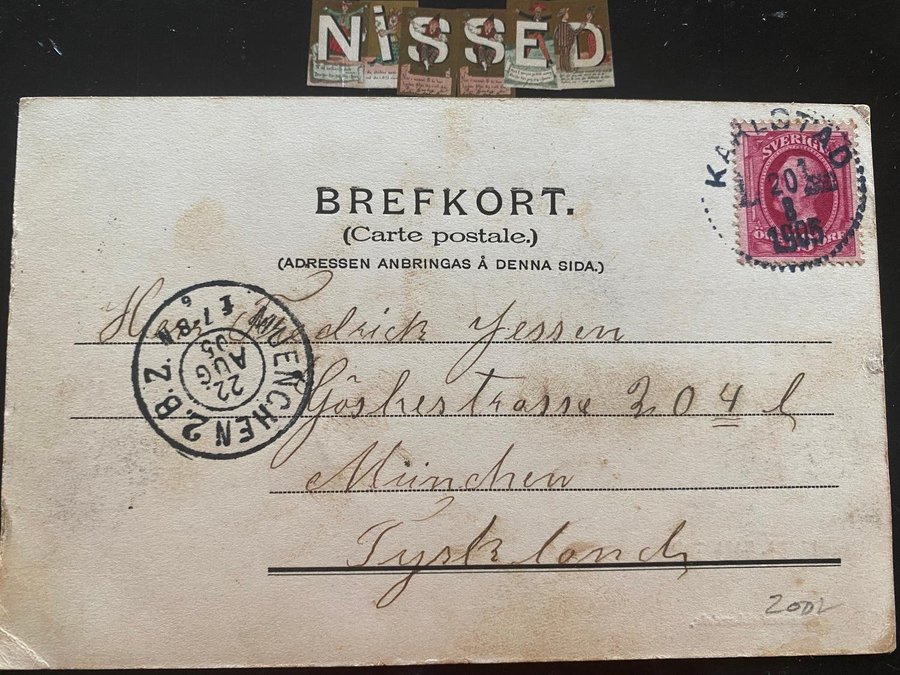 NISSED
KARLSTAD
SVERIGE
20 1
8
1905
BREFKORT.
(Carte postale.)
(ADRESSEN ANBRINGAS Å DENNA SIDA.)
Herr Fredrick Jessen
MUENCHEN 2.B.Z.
22
AUG
05
7-8 N
204 l
München
Tyskland